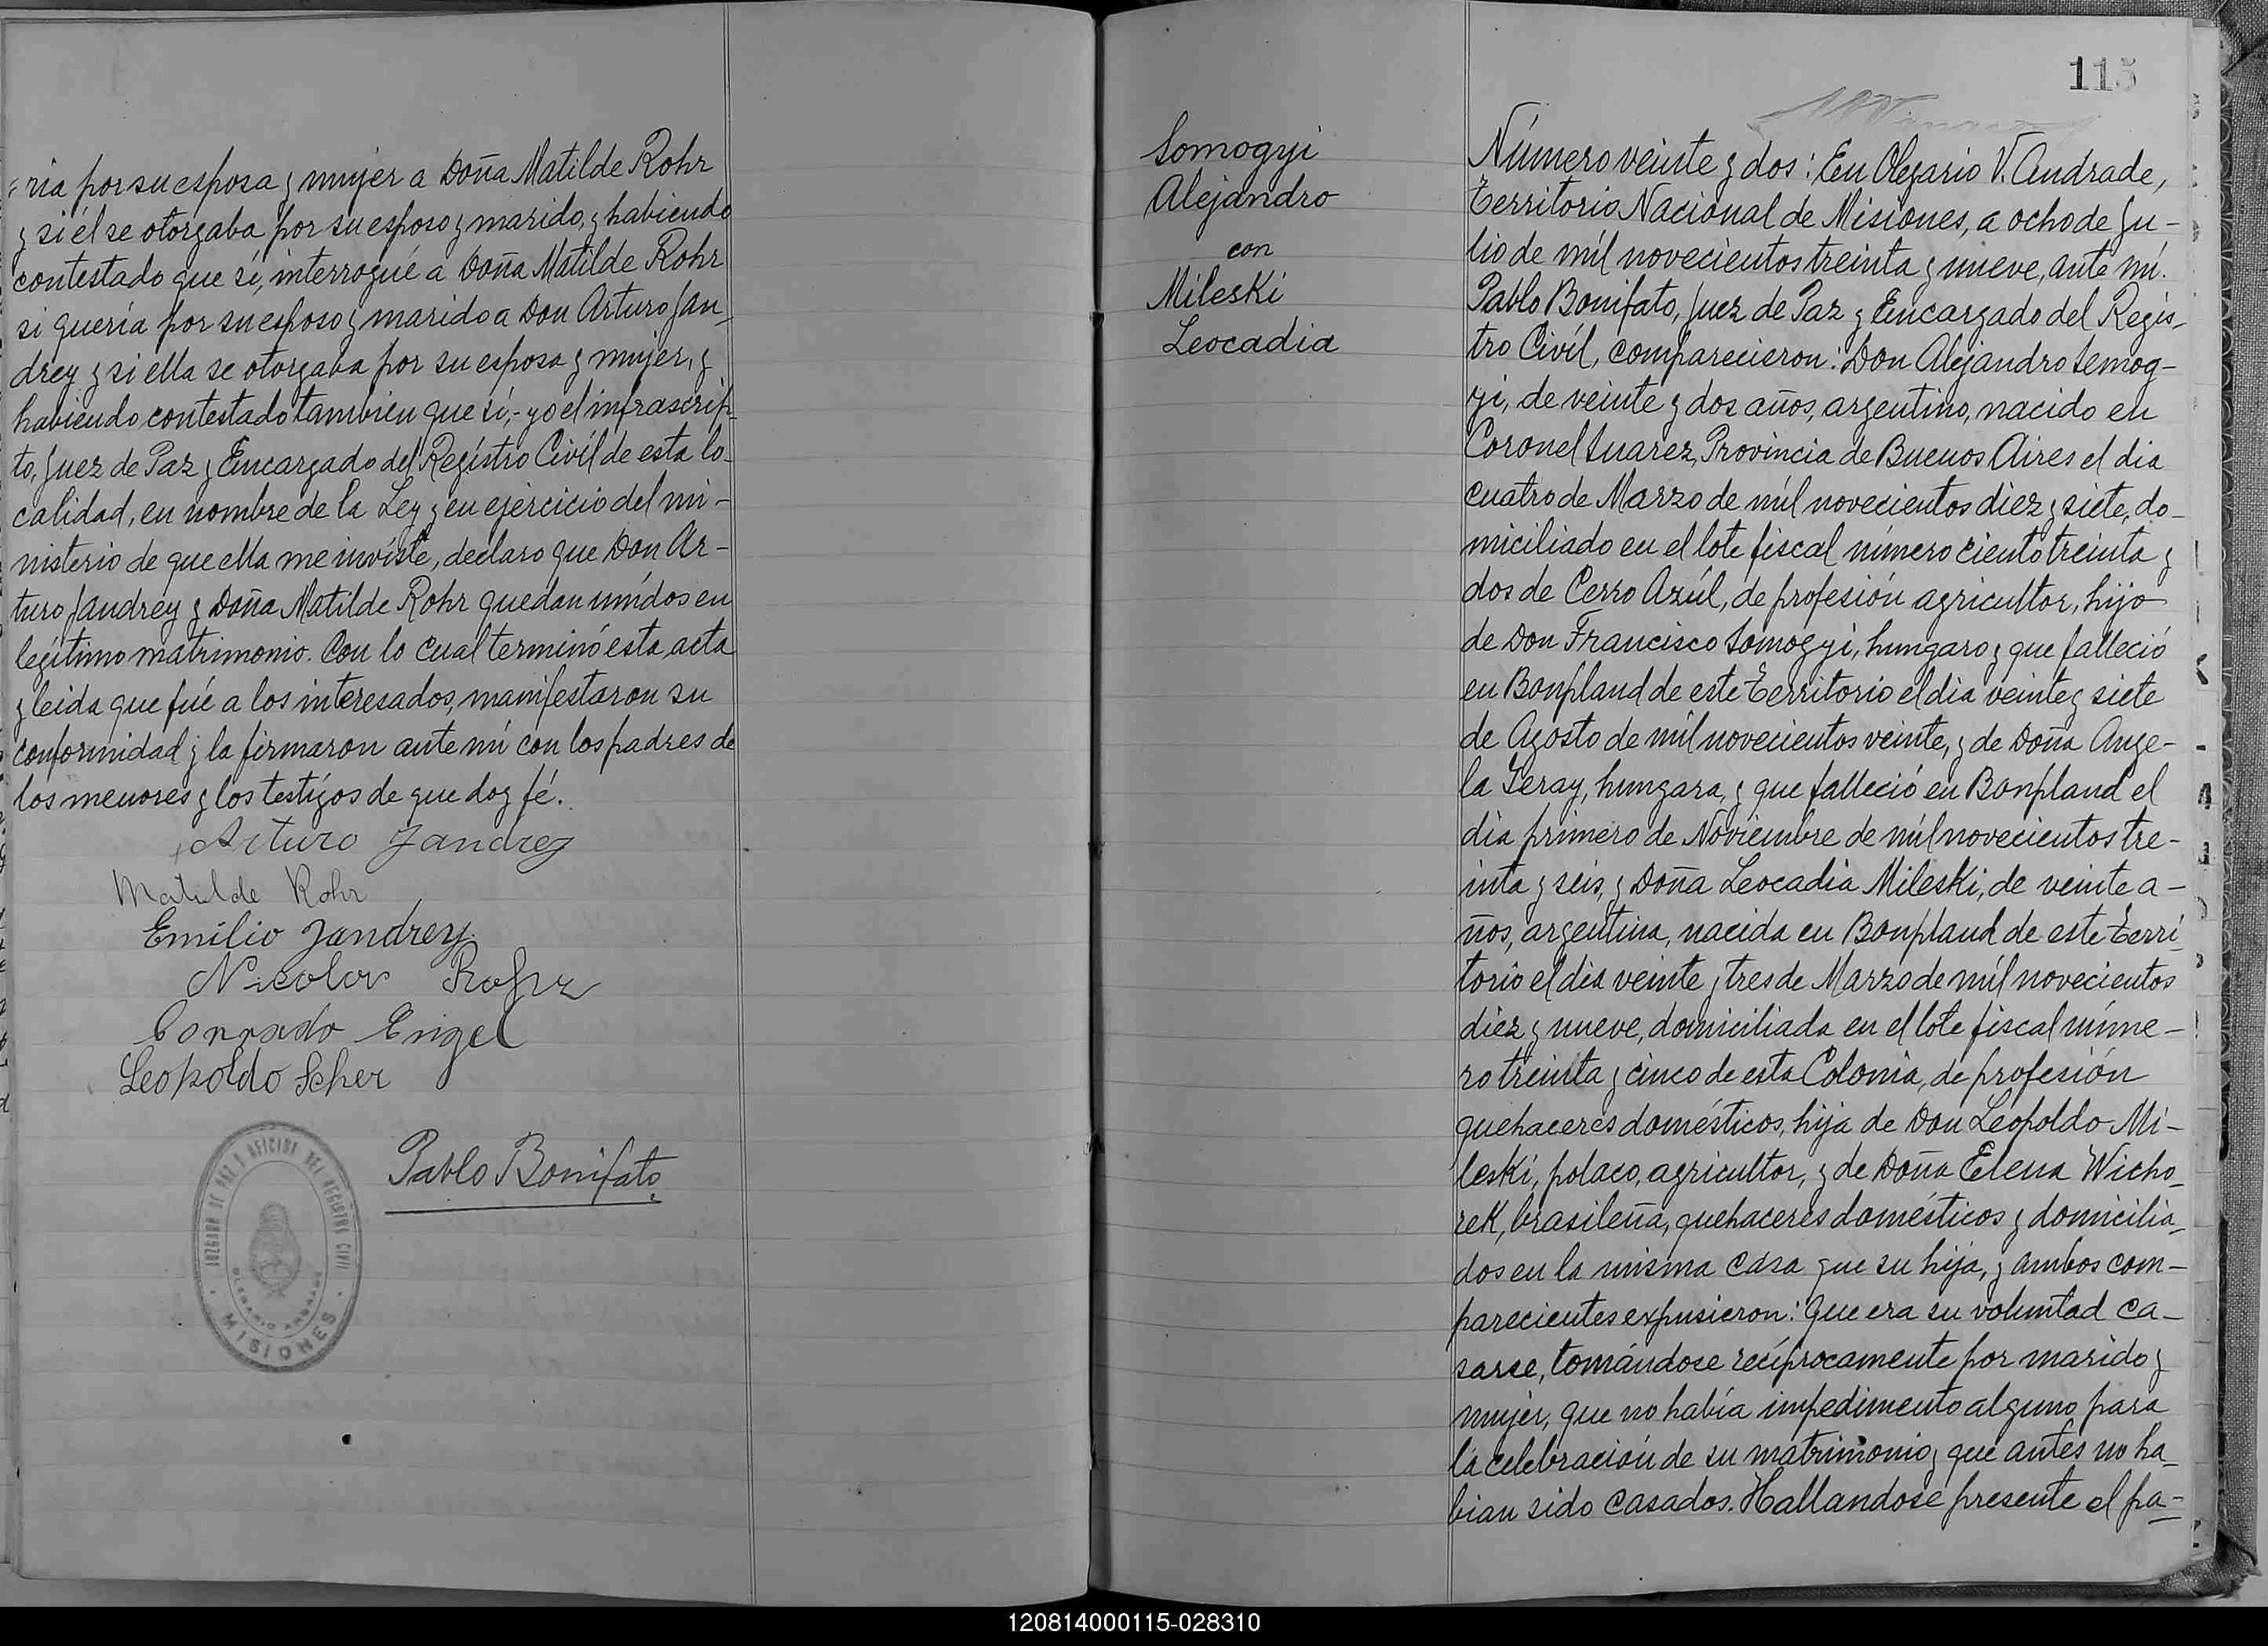 ria por su esposa y mujer a Doña Matilde Rohr
y si él se otorgaba por su esposo y marido, y habiendo
contestado que sí, interrogué a Doña Matilde Rohr
si quería por su esposo y marido a Don Arturo Jan-
drey y si ella se otorgaba por su esposa y mujer, y
habiendo contestado también que sí,- yo el infrascrip-
to, Juez de Paz y Encargado del Registro Civil de esta lo-
calidad, en nombre de la Ley y en ejercicio del mi-
nisterio de que ella me inviste, declaro que Don Ar-
turo Jandrey y Doña Matilde Rohr quedan unidos en
legítimo matrimonio. Con lo cual terminó esta acta
y leida que fué a los interesados, manifestaron su
conformidad y la firmaron ante mí con los padres de
los menores y los testigos de que doy fé.
Arturo Jandrey
Matilde Rohr
Emilio Jandrey
Nicolas Rohr
Conrado Engel
Leopoldo Scher
Pablo Bonifato
JUZGADO DE PAZ Y OFICINA DEL REGISTRO CIVIL
OLEGARIO ANDRADE
MISIONES
115
Somogyi
Alejandro
con
Mileski
Leocadia
Número veinte y dos: En Olegario V. Andrade,
Territorio Nacional de Misiones, a ocho de Ju-
lio de mil novecientos treinta y nueve, ante mí.
Pablo Bonifato, Juez de Paz y Encargado del Regis-
tro Civil, comparecieron: Don Alejandro Semog-
yi, de veinte y dos años, argentino, nacido en
Coronel Suarez, Provincia de Buenos Aires el dia
cuatro de Marzo de mil novecientos diez y siete, do-
miciliado en el lote fiscal número ciento treinta y
dos de Cerro Azúl, de profesión agricultor, hijo
de Don Francisco Somogyi, hungaro y que falleció
en Bonpland de este Territorio el dia veinte y siete
de Agosto de mil novecientos veinte, y de Doña Ange-
la Teray, hungara, y que falleció en Bonpland el
dia primero de Noviembre de mil novecientos tre-
inta y seis, y Doña Leocadia Mileski, de veinte a-
ños, argentina, nacida en Bonpland de este Terri-
torio el dia veinte y tres de Marzo de mil novecientos
diez y nueve, domiciliada en el lote fiscal núme-
ro treinta y cinco de esta Colonia, de profesión
quehaceres domésticos, hija de Don Leopoldo Mi-
leski, polaco, agricultor, y de Doña Elena Wicho-
rek, brasileña, quehaceres domésticos y domicilia-
dos en la misma casa que su hija, y ambos com-
parecientes expusieron: Que era su voluntad ca-
sarse, tomándose recíprocamente por marido y
mujer, que no había impedimento alguno para
la celebración de su matrimonio y que antes no ha-
bian sido casados. Hallandose presente el pa-
120814000115-028310